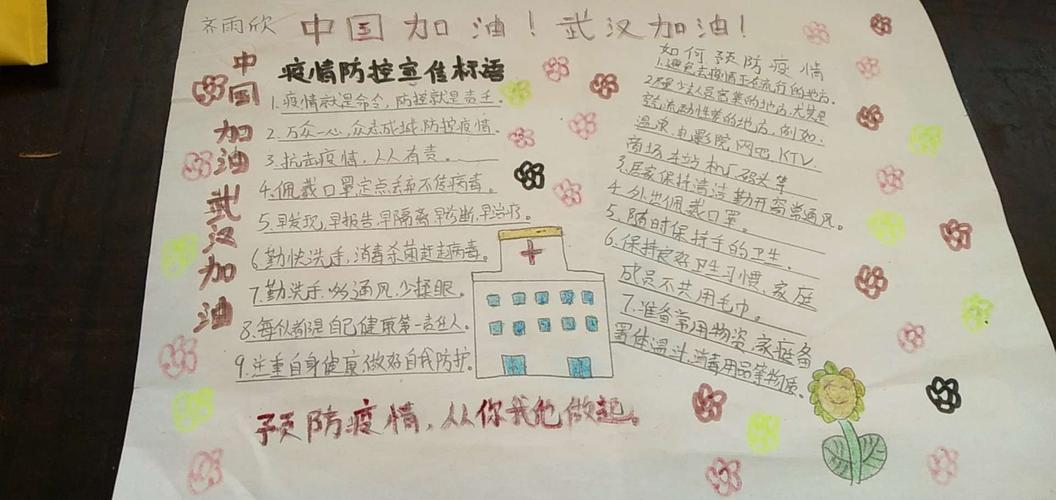 齐雨欣
中国加油！武汉加油！
中国加油武汉加油
疫情防控宣传标语
1.疫情就是命令，防控就是责任。
2.万众一心，众志成城，防控疫情。
3.抗击疫情，人人有责。
4.佩戴口罩定点丢弃不传病毒。
5.早发现，早报告，早隔离早诊断，早治疗。
6.勤快洗手，消毒杀菌赶走病毒。
7.勤洗手，多通风，少揉眼。
8.每个人都是自己健康第一责任人。
9.注重自身健康，做好自我防护。
如何预防疫情
1.避免去疫情正在流行的地方。
2.尽量少去人员密集的地方，尤其是
空气流动性差的地方，例如：
温泉、电影院、网吧、KTV、
商场、车站、机厂、码头等
3.居家保持清洁，勤开窗常通风。
4.外出佩戴口罩。
5.随时保持手的卫生.
6.保持良好卫生习惯，家庭
成员不共用毛巾。
7.准备常用物资，家庭备
置体温计，消毒用品等物质。
预防疫情，从你我他做起。